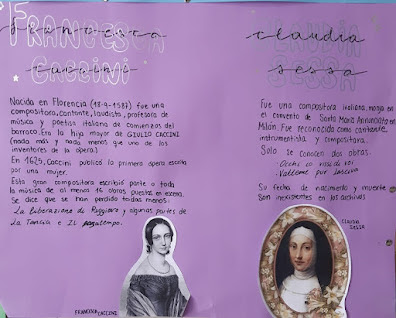 FRANCESCA
francesca
CACCINI
caccini
Nacida en Florencia (18-9-1587) fue una
compositora, cantante, laudista, profesora de
música y poetisa italiana de comienzos del
barroco. Era la hija mayor de GIULIO CACCINI
(nada más y nada menos que uno de los
inventores de la ópera)
En 1625, Caccini publicó la primera ópera escrita
por una mujer.
Esta gran compositora escribió parte o toda
la música de al menos 16 obras puestas en escena.
Se dice que se han perdido todas menos:
La liberazione de Ruggiero y algunas partes de
La Tancia e Il passatempo.
FRANCESCA CACCINI
CLAUDIA
claudia
SESSA
sessa
Fue una compositora italiana, monja en
el convento de Santa María Annunciata en
Milán. Fue reconocida como cantante,
instrumentista y compositora.
Solo se conocen dos obras.
- Occhi io vissi di voi
- Vattene pur lasciva
Su fecha de nacimiento y muerte
son inexistentes en los archivos
CLAUDIA
SESSA